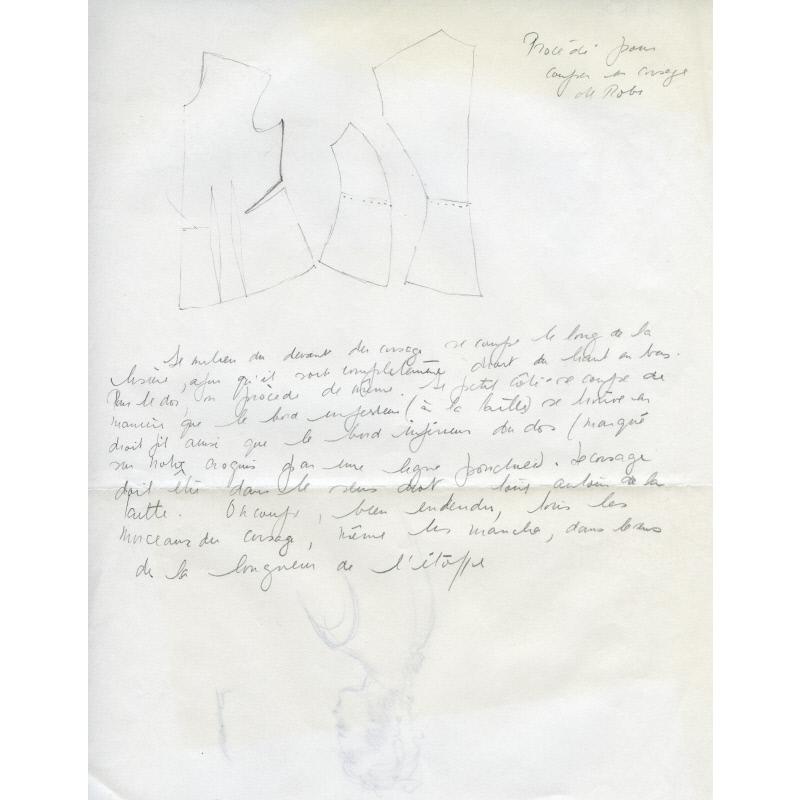 Procédé pour
couper un corsage
de Robe
Le milieu du devant du corsage se coupe le long de la
lisière, afin qu'il soit complètement droit du haut en bas.
Pour le dos, on procède de même. Le petit côté se coupe de
manière que le bord inférieur (à la taille) se trouve en
droit fil ainsi que le bord inférieur du dos (marqué
sur notre croquis par une ligne ponctuée). Le corsage
doit être dans le sens droit tout autour de la
taille. On coupe, bien entendu, tous les
morceaux du corsage, même les manches, dans le sens
de la longueur de l'étoffe